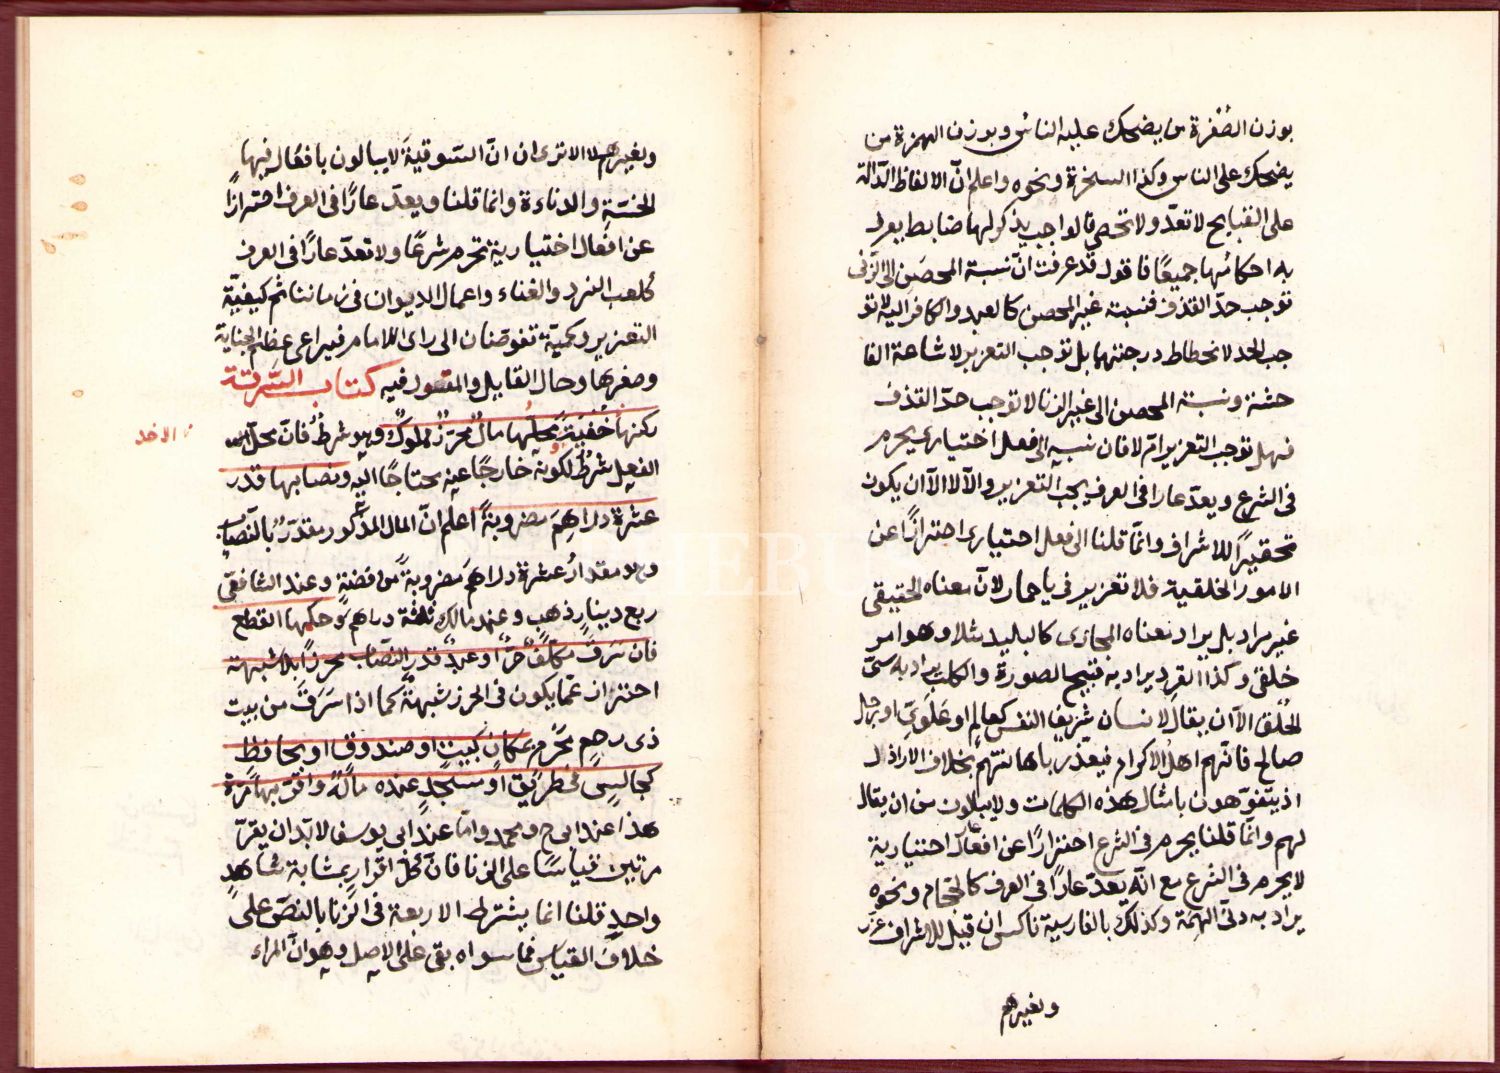 بوزن الصُفْرة من يضحك عليه الناس وبوزن الهمزة من
يضحك على الناس وكذا السخرة ونحوه واعلم انّ الالفاظ الدّالّة
على القبايح لا تعدّ ولا تحصى فالواجب يذكر لها ضابط يعرف
به احكامُها جميعًا فاقول قد عرفت انّ نسبة المحصَن الى الزّنى
توجب حدّ القذف فنسبة غير المحصن كالعبد والكافر اليه لا تو
جب الحد لانحطاط درجتها بل توجب التعزير لاشاعة الفا
حشة ونسبة المحصن الى غير الزنا لا توجب حدّ القذف
فهل توجب التعزير ام لا فان نسبه الى فعل اختيارى يحرم
فى الشرع ويعدّ عارا فى العرف يجب التعزير والّا لا الّا ان يكون
تحقيرًا للاشراف وانّما قلنا الى فعل اختيارى احترازًا عن
الامور الخلقية فلا تعزير فى يا حمار لانّ معناه الحقيقى
غير مراد بل يراد معناه المجازى كالبليد مثلا وهو امر
خلقى وكذا القرد يراد به قبيح الصورة والكلب يراد به سىّ
الخُلق الّا ان يقال لانسان شريف النفس كعالم او علوىّ او رجل
صالح فانّهم اهل الاكرام فيعذّر باهانتهم بخلاف الاراذل
اذ يتفوّهون بامثال هذه الكلمات ولا يبالون من ان يقال
لهم وانّما قلنا يحرم فى الشرع احترازًا عن افعال اختيارية
لا يحرم فى الشرع مع انّه يعدّ عارًا فى العرف كالحجام ونحوه
يراد به دنىّ الهمّة وكذلك بالفارسية ناكس ان قيل للاشراف عزر
ولغيرهم
ولغيرهم لا الا ترى ان انّ السّوقية لا يبالون بافعال فيها
الخسّة والدناءة وانما قلنا ويعدّ عارًا فى العرف احترازًا
عن افعال اختيارية تحرم شرعًا ولا تعدّ عارًا فى العرف
كلعب النرد والغناء واعمال الديوان فى زماننا ثم كيفيّة
التعزير وكميّة تفوضان الى راى الامام فيراعى عظم الجناية
وصغرها وحال القايل والمقول فيه كتاب السّرقة
ركنها خُفيَة ومحلّها مالٌ محرزٌ مملوكٌ وهو شرطٌ فانّ محلّ
الفعل شرطٌ لكونه خارجًا عنه محتاجًا اليه ونصابها قدر
الاخذ
عشرة دراهم مضروبةً اعلم انّ المال المذكور مقدّرٌ بالنّصاب
وهو مقدارُ عشرة دراهمَ مضروبةً من فضةٍ وعند الشافعىّ
ربع دينارِ ذهب وعند مالك ثلثة دراهم وحكمها القطع
فان سَرَقَ مكلّفٌ حرٌّ او عبدٌ قدرَ النصاب محرزًا بلا شبهة
احترازٌ عمّا يكون فى الحرز شبهةٌ كما اذا سَرَقَ من بيت
ذى رحم محْرم بمكانٍ كبيتٍ او صندوق او بحافظٍ
كجالسٍ فى طريق او مسجدٍ عنده مالُه واقرّ بها مرّة
هذا عند ابى ح ومحمد وامّا عند ابى يوسف لا بدّ ان يقرّ
مرتين قياسًا على الزنا فانّ كلّ اقرار بمثابة شاهدٍ
واحدٍ قلنا انما يشترط الاربعة فى الزنا بالنصّ على
خلاف القياس فما سواه بقى على الاصل وهو انّ المراء